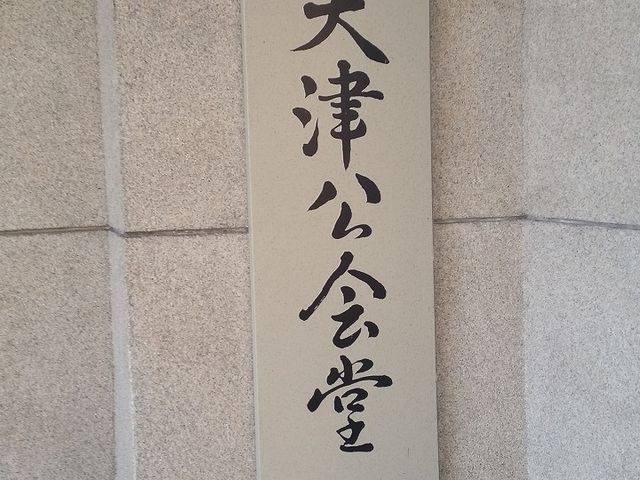 大津公会堂